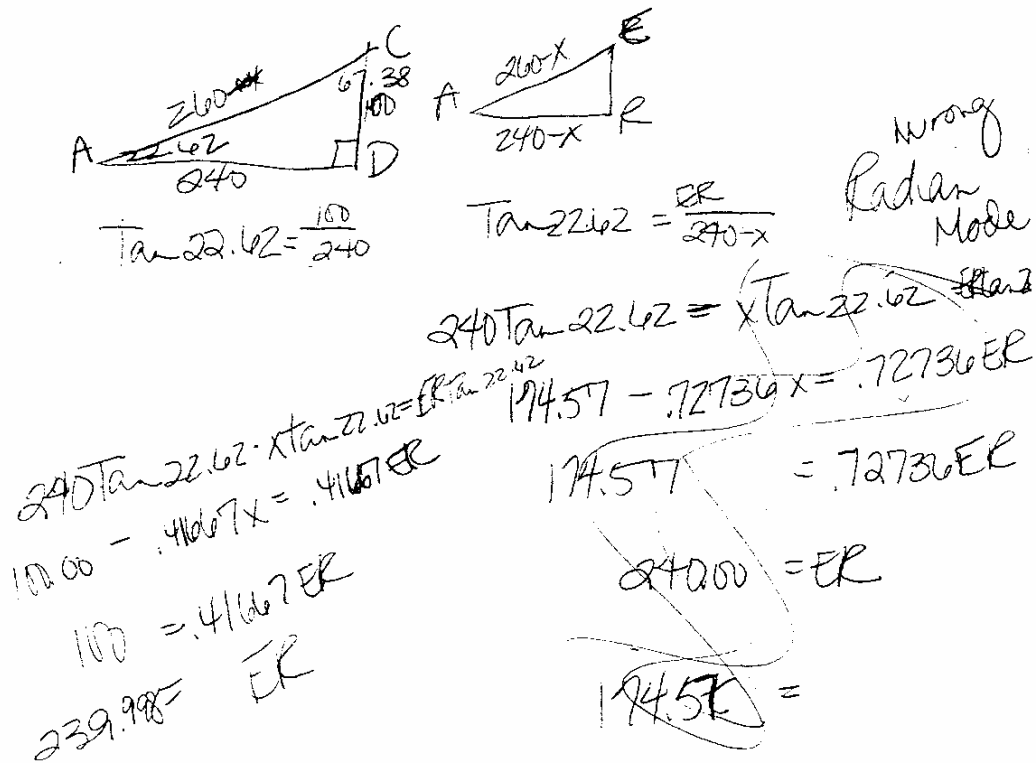 C
260
67.38
100
A
22.62
D
240
260-x
E
A
R
240-x
Wrong
Radian
Mode
Tan 22.62 = 100/240
Tan 22.62 = ER/240-x
240 Tan 22.62 = x Tan 22.62
174.57 - .72736x = .72736 ER
174.57 = .72736 ER
240.00 = ER
174.57 =
240 Tan 22.62 - x tan 22.62 = ER Tan 22.62
100.00 - .41667x = .41667 ER
100 = .41667 ER
239.998 = ER